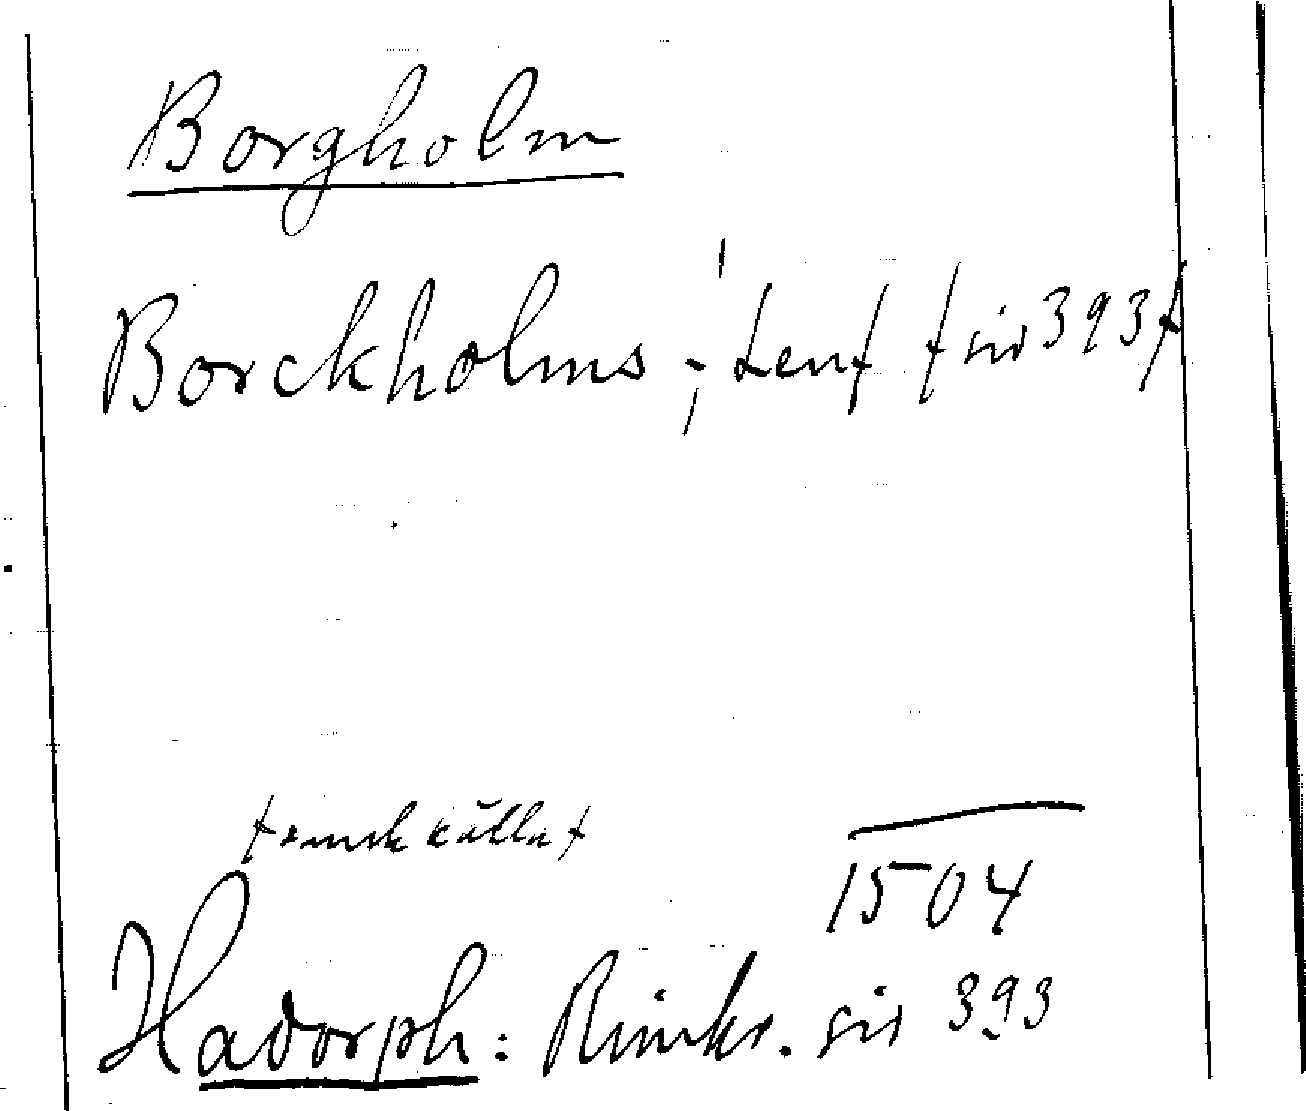 Borgholm
Borckholms ; Lenf f sid 393 f
källa f
1504
Hadorph: Rimkr. sid 393